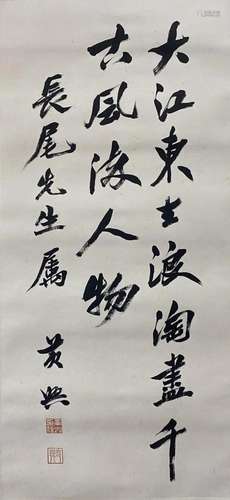 大江東去浪淘盡千
古風流人物
長尾先生属
黄興